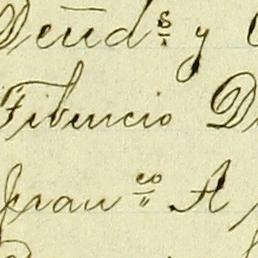 Deud.s y
Fibuncio D
Fran.co A